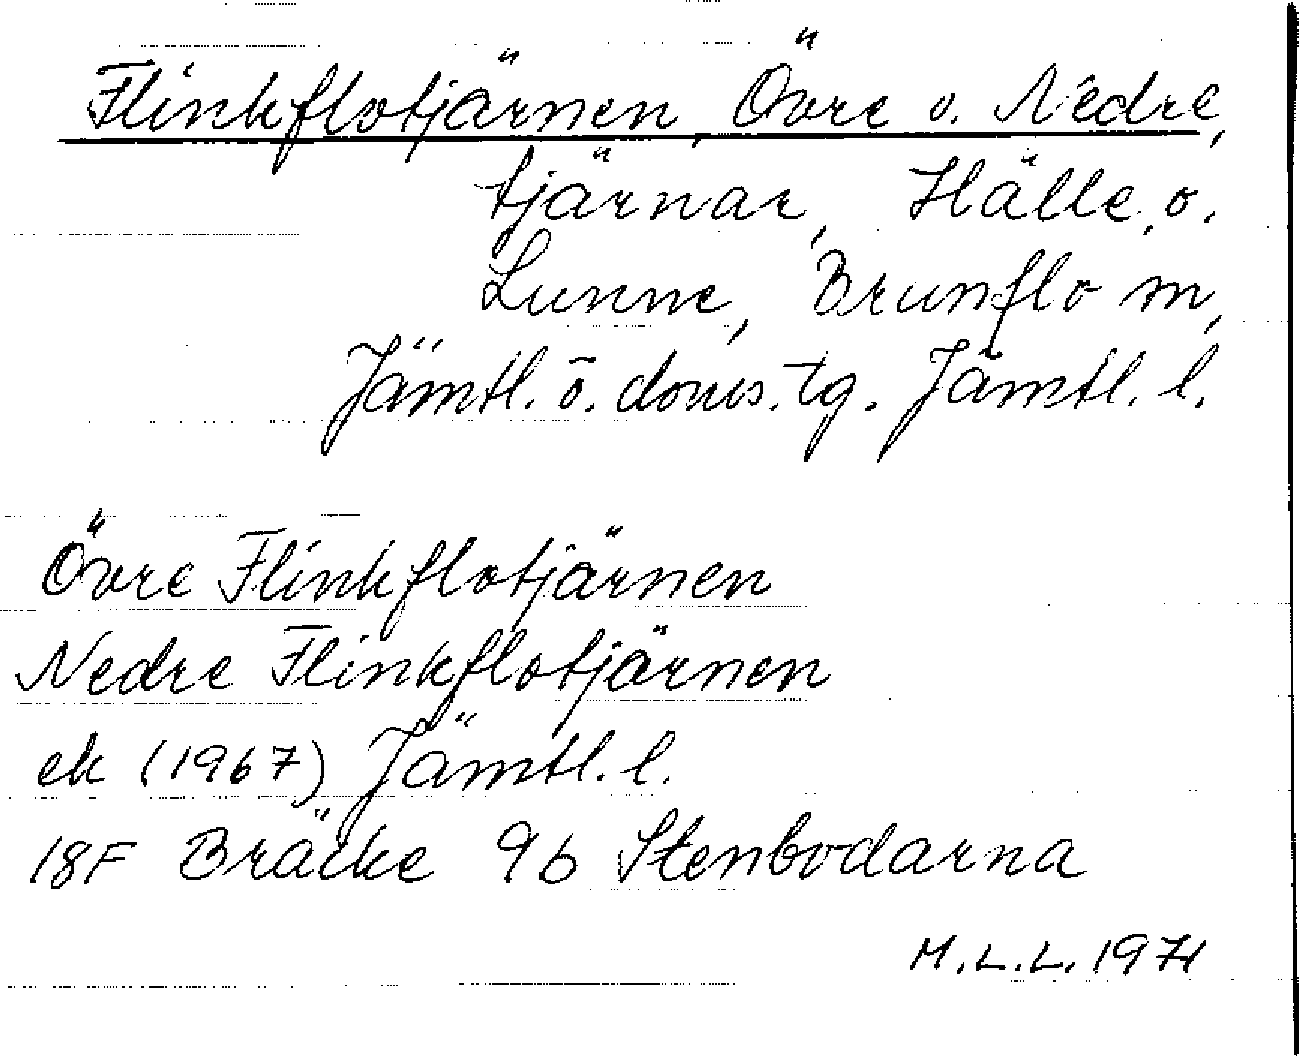 Flinkflotjärnen, Övre o. Nedre,
tjärnar, Hälle, o.
Lunne, Brunflo sn,
Jämtl. ö. doms. tg. Jämtl. l.
Övre Flinkflotjärnen
Nedre Flinkflotjärnen
ek (1967) Jämtl. l.
18F Bräcke 9b Stenbodarna
M.L.L. 1971